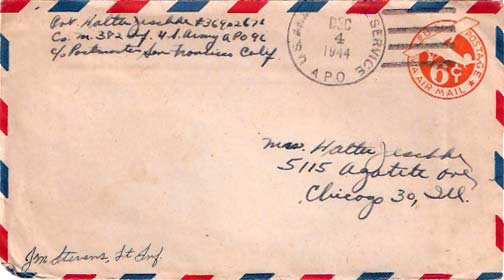 Pvt. Walter Jeschke #36902671
Co. M. 382 Inf. U.S. Army APO 96
c/o Postmaster San Francisco Calif.
U.S. ARMY SERVICE
DEC
4
1944
APO
U.S. POSTAGE
6¢
VIA AIR MAIL
Mrs. Walter Jeschke
5115 Agatite Ave
Chicago 30, Ill.
Jim Stevens, Lt Inf.